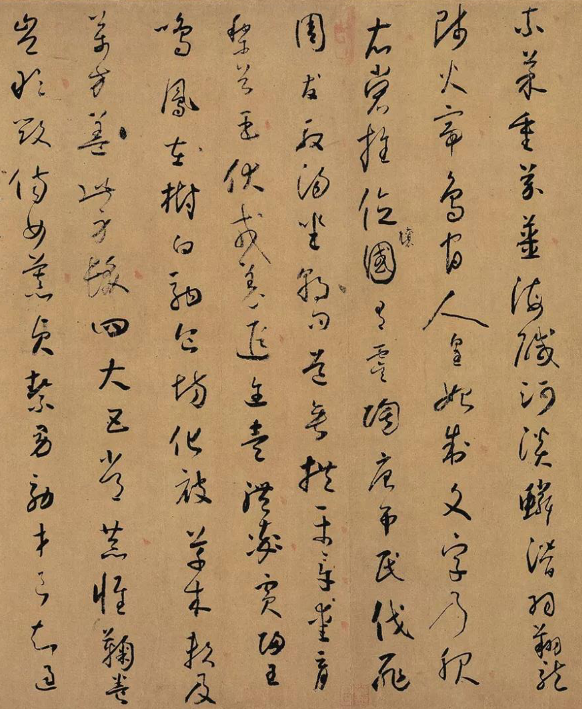 柰菜重芥薑海鹹河淡鱗潛羽翔龍
師火帝鳥官人皇始制文字乃服
衣裳推位讓國有虞陶唐弔民伐罪
周發殷湯坐朝問道垂拱平章愛育
黎首臣伏戎羌遐邇壹體率賓歸王
鳴鳳在樹白駒食場化被草木賴及
萬方蓋此身髮四大五常恭惟鞠養
豈敢毀傷女慕貞絜男效才良知過